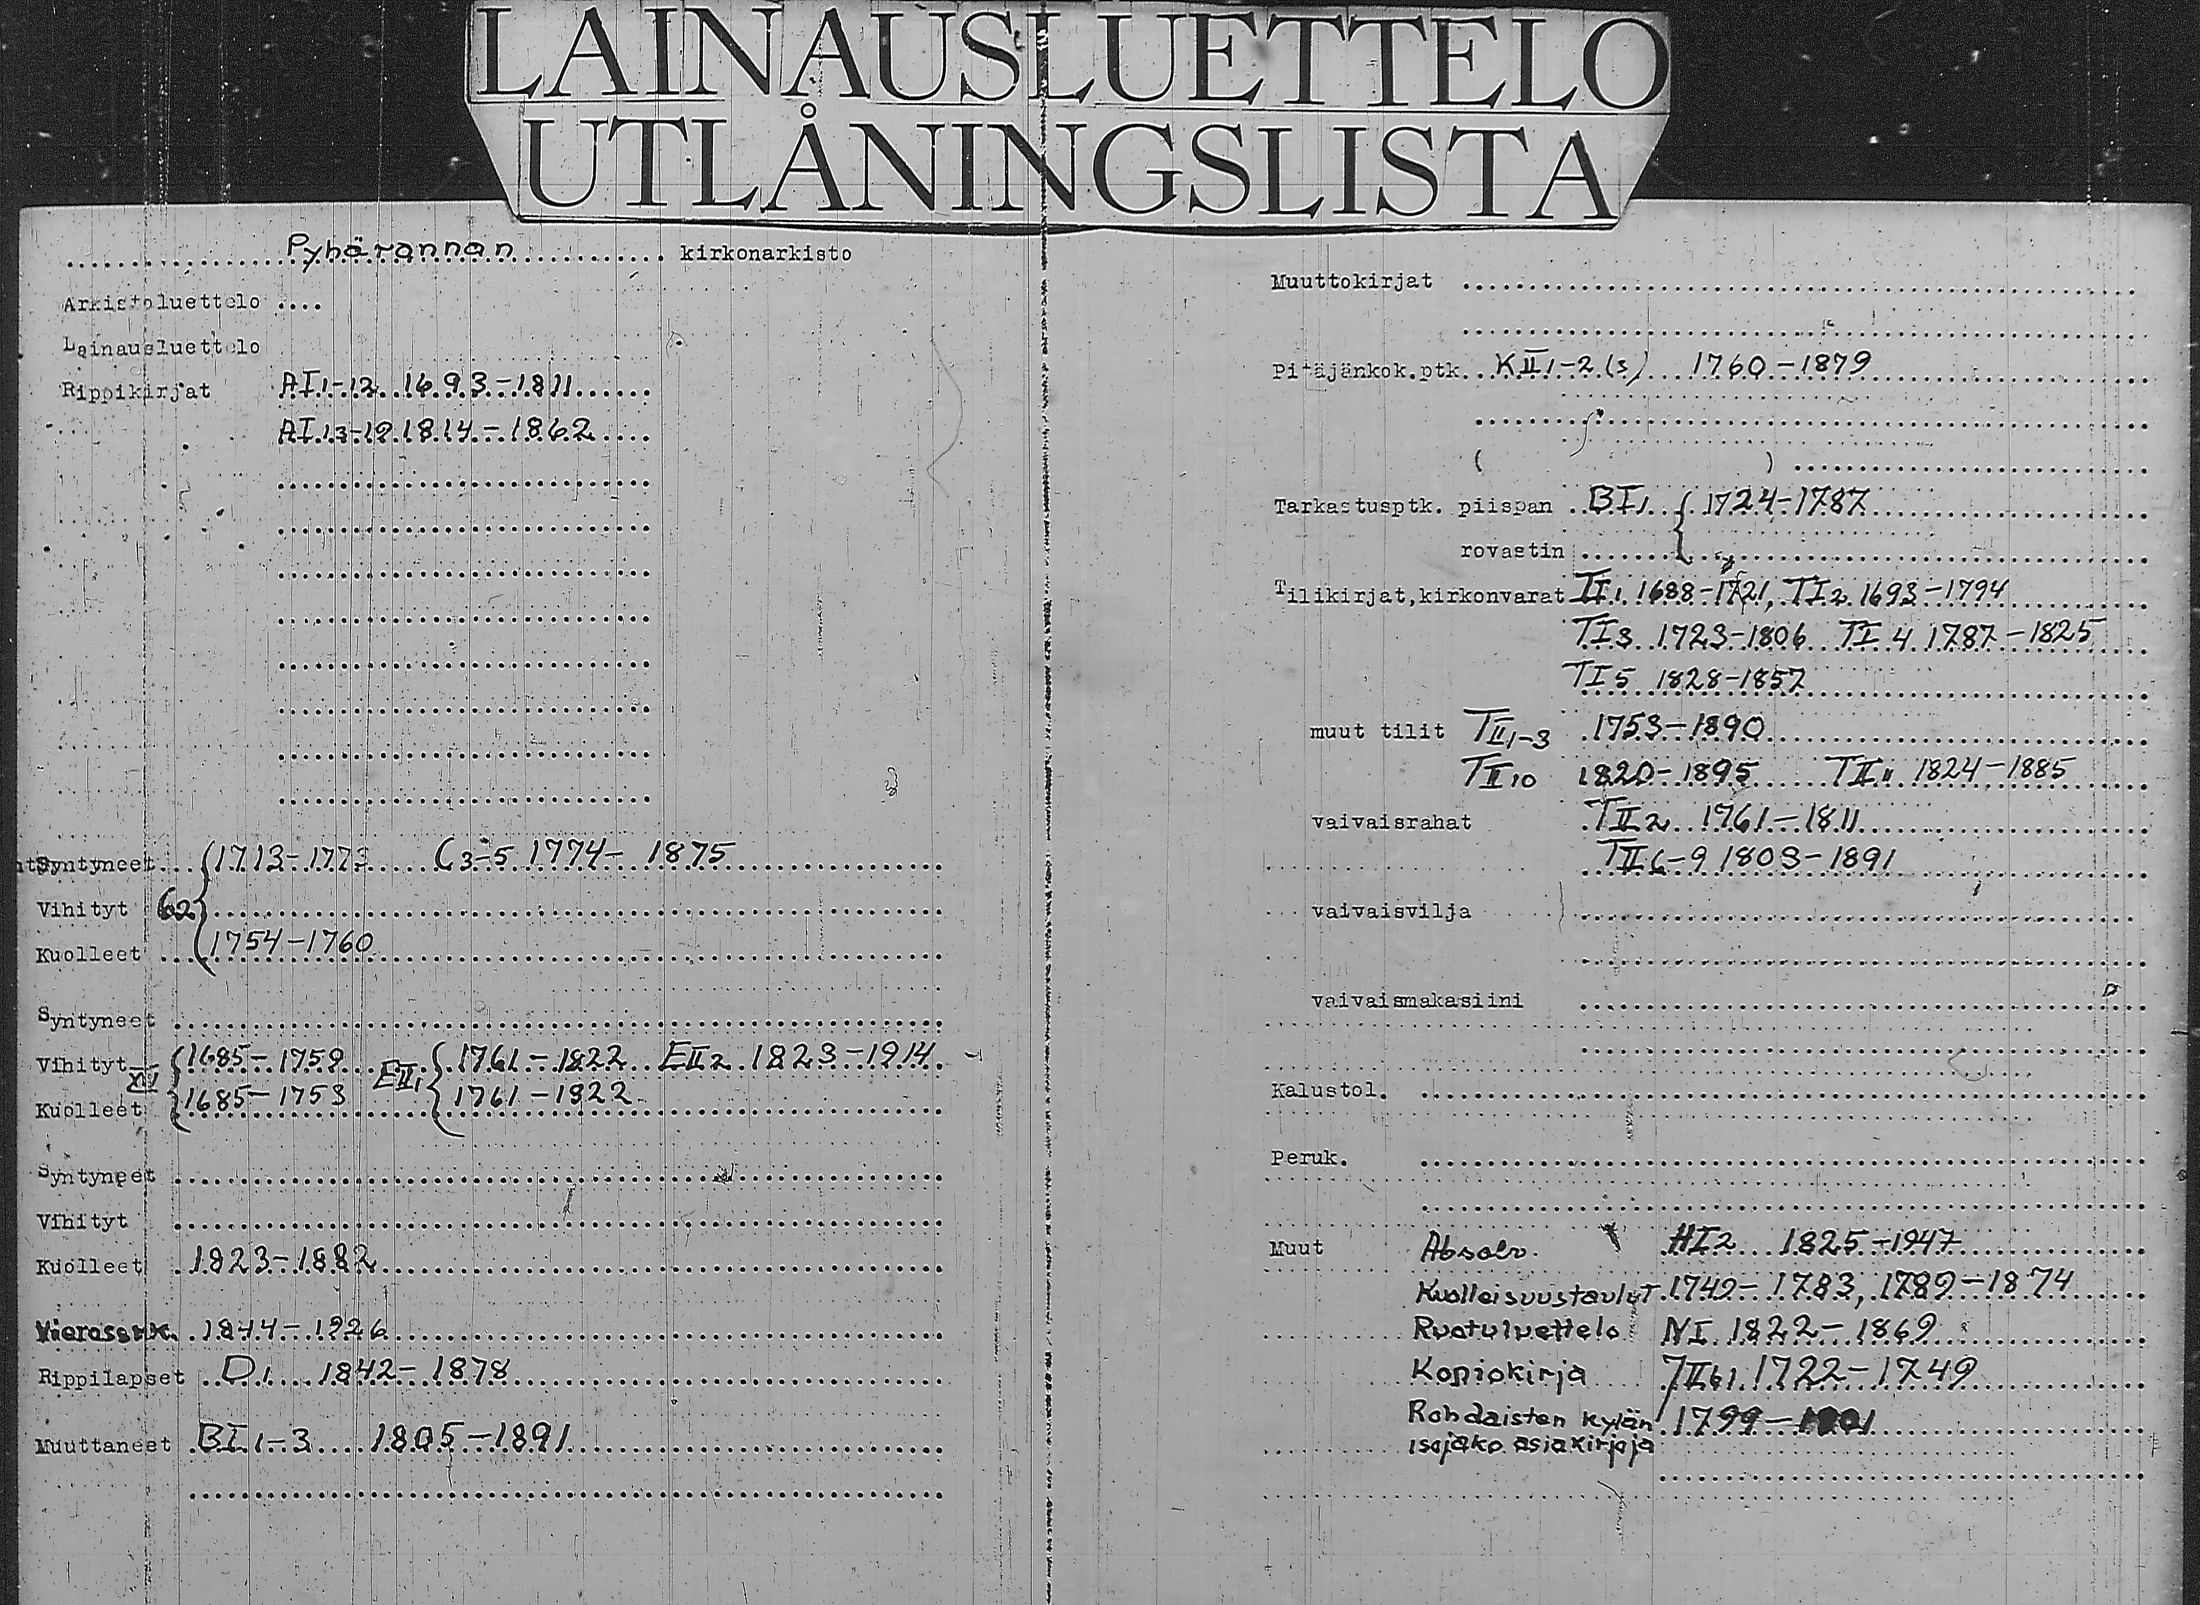 LAINAUSLUETTELO
UTLÅNINGSLISTA
Pyhärannan kirkonarkisto
Arkistoluettelo
Lainausluettelo
Rippikirjat AI 1-12 1693-1811
AI 13-19 1814-1862
Syntyneet 1713-1773 C3-5 1774-1875
Vihityt
Kuolleet 1754-1760
Syntyneet
Vihityt 1685-1759 EII1 1761-1822 EII2 1823-1914
Kuolleet 1685-1753 1761-1822
Syntyneet
Vihityt
Kuolleet 1823-1882
1844-1926
Rippilapset D1 1842-1878
Muuttaneet BI 1-3 1805-1891
Muuttokirjat
Pitäjänkok.ptk. KII 1-2 (s) 1760-1879
( )
Tarkastusptk. piispan BI1 { 1724-1787
rovastin
Tilikirjat,kirkonvarat TI1 1688-1721, TI2 1693-1794
TI3 1723-1806 TI4 1787-1825
TI5 1828-1857
muut tilit TII1-3 1753-1890
TII10 1820-1895 TII11 1824-1885
vaivaisrahat TII2 1761-1811
TII6-9 1803-1891
vaivaisvilja
vaivaismakasiini
Kalustol.
Peruk.
Muut Absolv. HI2 1825-1947
Kuolleisuustaulut 1749-1783, 1789-1874
Ruotuluettelo NI 1822-1869
Kopiokirja 1722-1749
Rohdaisten kylän 1799-
isojako asiakirjoja